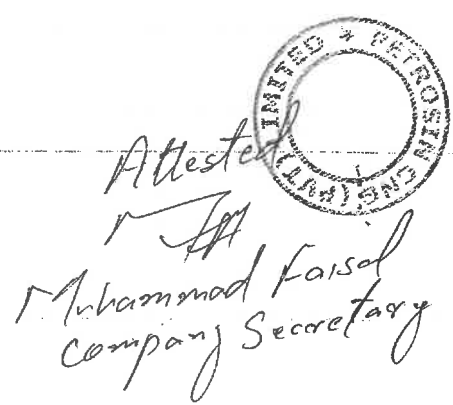 PETROSIN CNG (PVT) LIMITED *
Attested
Muhammad Faisal
Company Secretary